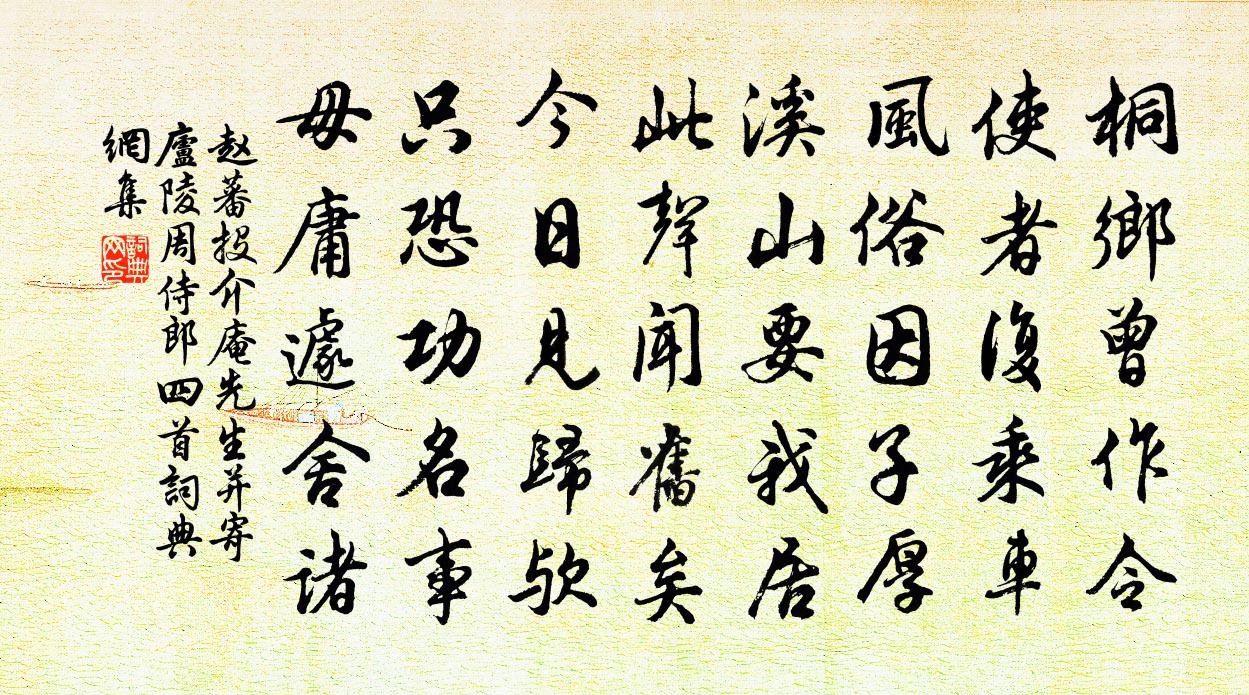 桐鄉曾作令
使者復乘車
風俗因子厚
溪山要我居
此聲聞舊矣
今日見歸歟
只恐功名事
毋庸遽舍諸
赵蕃投介庵先生并寄
廬陵周侍郎四首詞典
網集
詞典網印